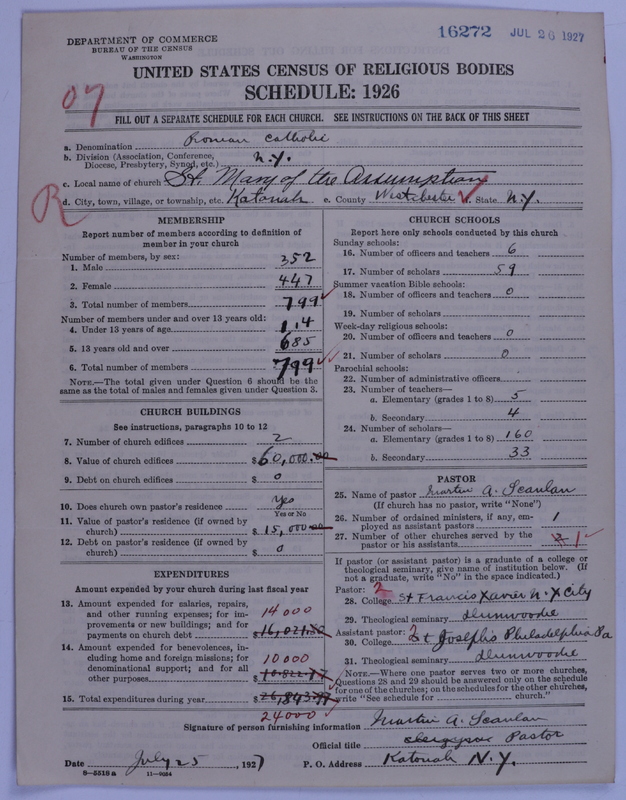 DEPARTMENT OF COMMERCE
BUREAU OF THE CENSUS
WASHINGTON
16272 JUL 26 1927
UNITED STATES CENSUS OF RELIGIOUS BODIES
SCHEDULE: 1926
07
FILL OUT A SEPARATE SCHEDULE FOR EACH CHURCH. SEE INSTRUCTIONS ON THE BACK OF THIS SHEET
a. Denomination Roman Catholic
b. Division (Association, Conference, Diocese, Presbytery, Synod, etc.) N.Y.
c. Local name of church St. Mary of the Assumption
R
d. City, town, village, or township, etc. Katonah e. County Westchester f. State N.Y.
MEMBERSHIP
Report number of members according to definition of
member in your church
Number of members, by sex:
1. Male 352
2. Female 447
3. Total number of members 799
Number of members under and over 13 years old:
4. Under 13 years of age 114
5. 13 years old and over 685
6. Total number of members 799
NOTE.—The total given under Question 6 should be the
same as the total of males and females given under Question 3.
CHURCH BUILDINGS
See instructions, paragraphs 10 to 12
7. Number of church edifices 2
8. Value of church edifices $60,000.00
9. Debt on church edifices $ 0
10. Does church own pastor's residence? Yes
Yes or No
11. Value of pastor's residence (if owned by
church) $ 15,000.00
12. Debt on pastor's residence (if owned by
church) $ 0
EXPENDITURES
Amount expended by your church during last fiscal year
13. Amount expended for salaries, repairs,
and other running expenses; for im-
provements or new buildings; and for
payments on church debt 14000
$
14. Amount expended for benevolences, in-
cluding home and foreign missions; for
denominational support; and for all
other purposes 10000
$
15. Total expenditures during year $
24000
CHURCH SCHOOLS
Report here only schools conducted by this church
Sunday schools:
16. Number of officers and teachers 6
17. Number of scholars 59
Summer vacation Bible schools:
18. Number of officers and teachers 0
19. Number of scholars
Week-day religious schools:
20. Number of officers and teachers 0
21. Number of scholars 0
Parochial schools:
22. Number of administrative officers
23. Number of teachers—
a. Elementary (grades 1 to 8) 5
b. Secondary 4
24. Number of scholars—
a. Elementary (grades 1 to 8) 160
b. Secondary 33
PASTOR
25. Name of pastor Martin A. Scanlan
(If church has no pastor, write "None")
26. Number of ordained ministers, if any, em-
ployed as assistant pastors 1
27. Number of other churches served by the
pastor or his assistants 2 1
If pastor (or assistant pastor) is a graduate of a college or
theological seminary, give name of institution below. (If
not a graduate, write "No" in the space indicated.)
Pastor: 2
28. College St Francis Xavier N.Y City
29. Theological seminary Dunwoodie
Assistant pastor: 2
30. College St Joseph's Philadelphia Pa
31. Theological seminary Dunwoodie
NOTE.—Where one pastor serves two or more churches,
Questions 28 and 29 should be answered only on the schedule
for one of the churches; on the schedules for the other churches,
write "See schedule for church."
Signature of person furnishing information Martin A. Scanlan
Official title clergyman Pastor
Date July 25, 1927 P. O. Address Katonah N.Y.
8—5518 a 11—9054